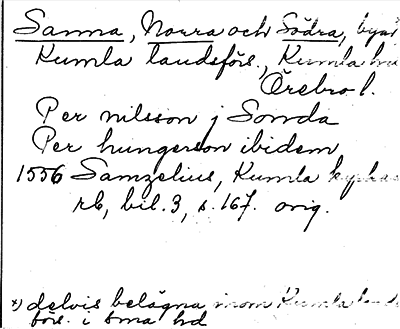 Sanna, Norra och Södra, byar
Kumla landsförs., Kumla
Örebro l.
Per nilsson j Sonda
Per hungerson ibidem
1556 Samzelius, Kumla
rb, bil. 3, s. 167. orig.
x) delvis belägna inom Kumla
förs. i sma hd